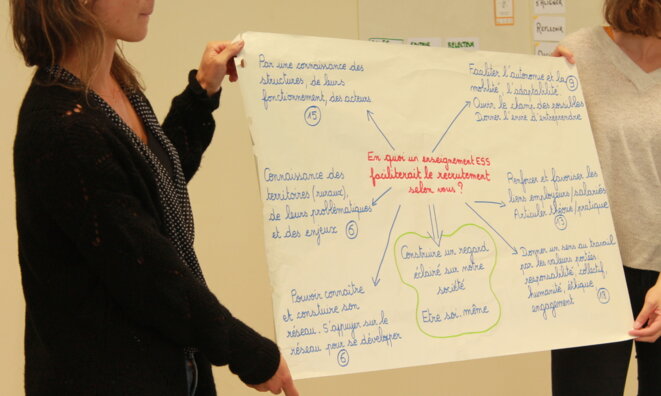 S'ALIGNER
REFLEXER
SÉLECTER
Par une connaissance des
structures, de leurs
fonctionnement, des acteurs
15
Faciliter l'autonomie et la
mobilité, l'adaptabilité
9
Ouvrir le champ des possibles
Donner l'envie d'entreprendre
En quoi un enseignement ESS
faciliterait le recrutement
selon vous ?
Connaissance des
territoires (ruraux),
de leurs problématiques
et des enjeux
6
Renforcer et favoriser les
liens employeurs/salariés
Articuler théorie/pratique
13
Construire un regard
éclairé sur notre
société
Etre soi-même
Donner un sens au travail
par les valeurs portées :
responsabilité, collectif,
humanité, éthique
engagement
19
Pouvoir connaître
et constuire son
réseau. S'appuyer sur le
réseau pour se développer
6